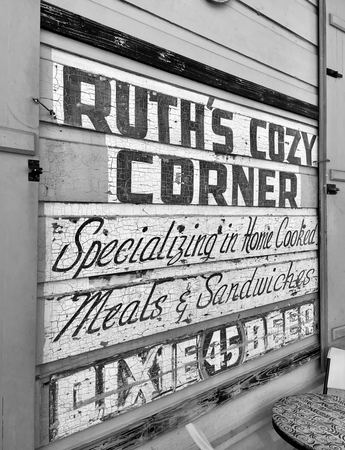 RUTH'S COZY
CORNER
Specializing in Home Cooked
Meals & Sandwiches
DIXIE 45 BEER